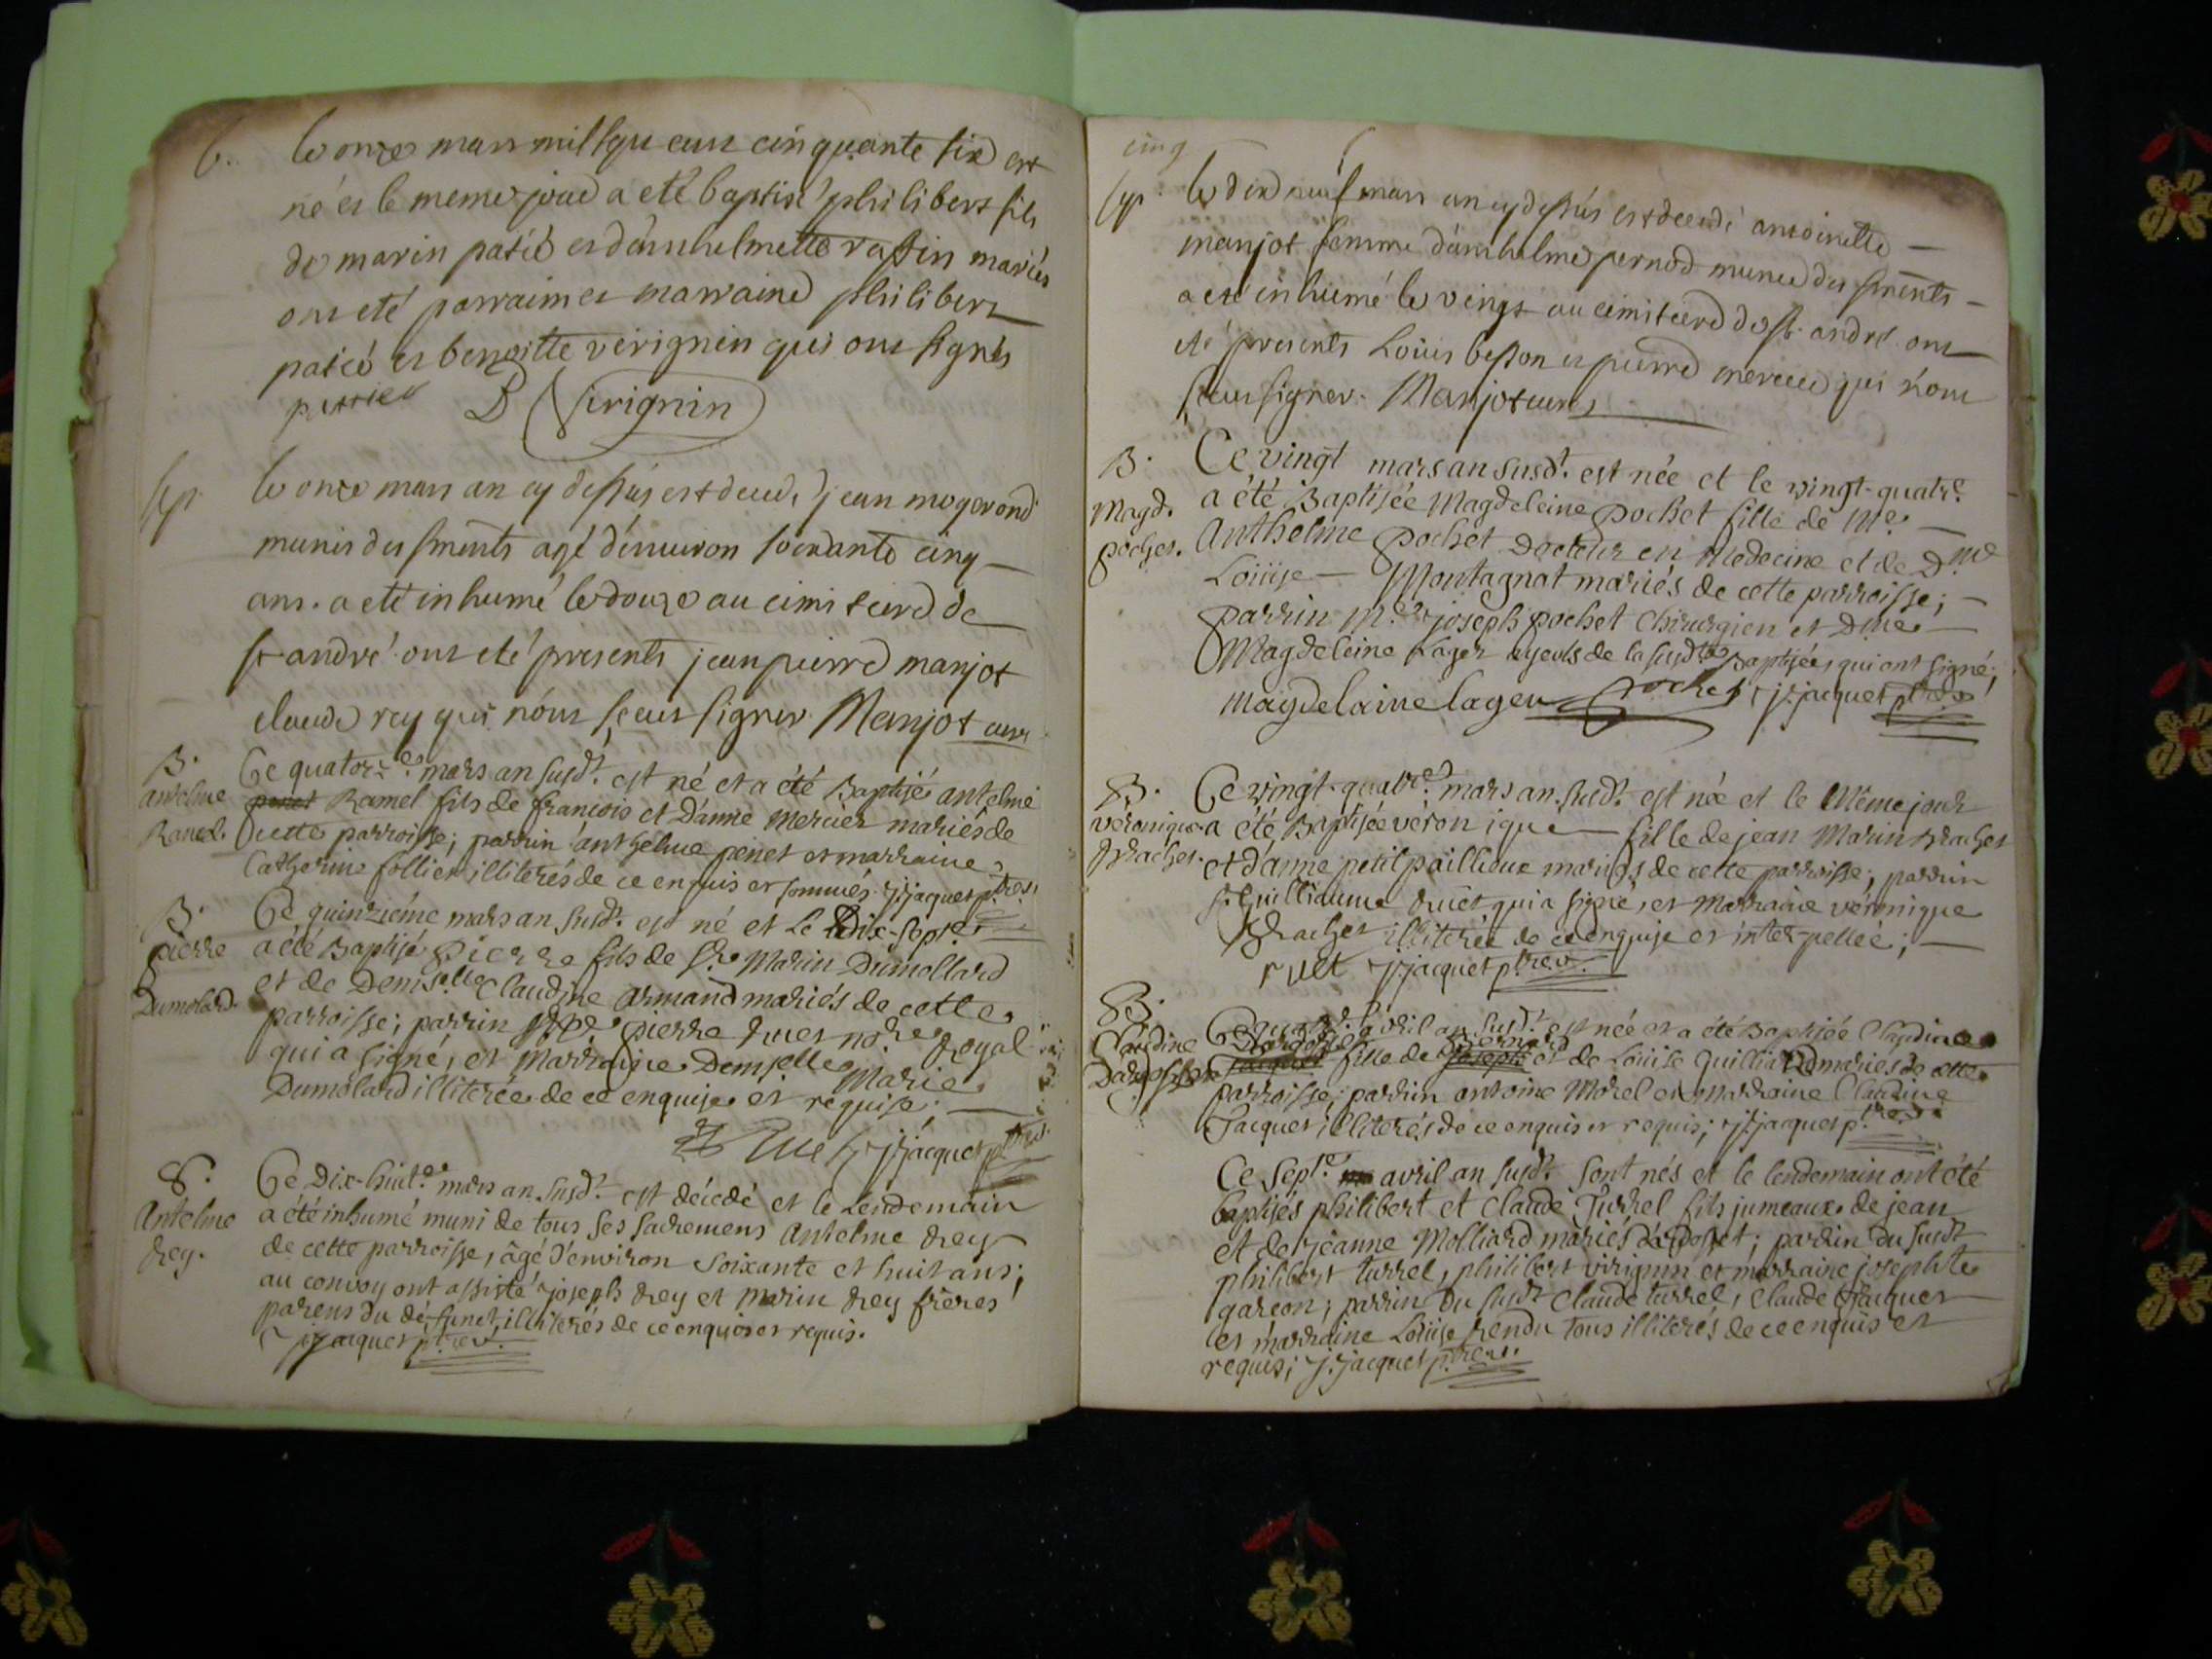 b. le onze mars mil sept cens cinquante six est
né et le meme jour a eté baptisé philibert fils
de marin patié et d'anthelmette raffin mariés
ont eté parrain et marraine philibert
patié et benoitte virignin qui ont signés
B Virignin
sep. le onze mars an cy dessus est decedé jean mogerond
munis des sments agé d'environ soixante cinq
ans. a eté inhumé le douze au cimitierre de
st andré ont eté presents jean pierre manjot
claude rey qui n'ont sceus signer Manjot curé
B. Ce quatorze. mars an susdt. est né et a été Baptisé antelme
antelme Ramel fils de francois et d'anne Mercier mariés de
Ramel. cette parroisse; parrin anthelme penet et marraine
Catherine follier illiterés de ce enquis et sommés. j. jacquet ptre. v.
B. Ce quinziéme mars an susdt. est né et le Dix-septe.
pierre a été Baptisé Pierre fils de Sr. Marin Dumollard
et de Demselle Claudine armand mariés de cette
Dumolard. parroisse; parrin pierre no.re Royal
qui a signé, et Marraine Demselle Marie
Dumolard illiterée de ce enquise et requise;
j. jacquet ptre. v.
S. Ce Dix-huite. mars an susdt. est décedé et le Lendemain
Antelme a été inhumé muni de tous ses sacremens Antelme Rey
Rey. de cette parroisse, âgé d'environ soixante et huit ans;
au convoy ont assisté joseph Rey et marin Rey frères
parens du défunct, illiterés de ce enquis et requis.
j. jacquet ptre. v.
cinq
sep. le dix neuf mars an cy dessus est decedé antoinette
manjot femme d'anthelme pernod munie des sments
a eté inhumé le vingt au cimitierre de st. andré ont
eté presents Loüis besson et pierre mercier qui n'ont
sceus signer. Manjot curé
B. Ce vingt mars an susdt. est née et le vingt-quatre.
Magd. a été Baptisée Magdeleine Pochet fille de Me.
pochet. Anthelme Pochet Docteur en Medecine et de Dme
Loüise Montagnat mariés de cette parroisse;
parrin Me. joseph pochet Chirurgien et Dme
Magdeleine Lager ayeuls de la susdte Baptisée, qui ont signé;
magdelaine lager Pochet j. jacquet ptre. v.
B. Ce vingt-quatre. mars an susdt. est née et le Même jour
veronique a été Baptisée véronique fille de jean Marin Brachet
Brachet. et d'anne petit pailloux mariés de cette parroisse; parrin
Sr. Guilliaume Ruet qui a signé, et Marraine véronique
Brachet illiterée de ce enquise et interpellée;
ruet j. jacquet ptre. v.
B. Ce quatre. avril an susdt. est née et a été Baptisée Claudine
Claudine fille de Bernard et de Loüise Quilliard mariés de cette
parroisse; parrin antoine Morel et marraine Claudine
Jacquet illiterés de ce enquis et requis; j. jacquet ptre. v.
Ce septe. avril an susdt. sont nés et le lendemain ont été
baptisés philibert et Claude Turrel fils jumeaux de jean
et de jeanne Molliard mariés d'ardosset; parrin du susdt
philibert turrel, philibert virignin et marraine josephte
garcon; parrin du susdt Claude turrel, Claude Jacquet
et marraine Loüise Rendu tous illiterés de ce enquis et
requis; j. jacquet ptre. v.